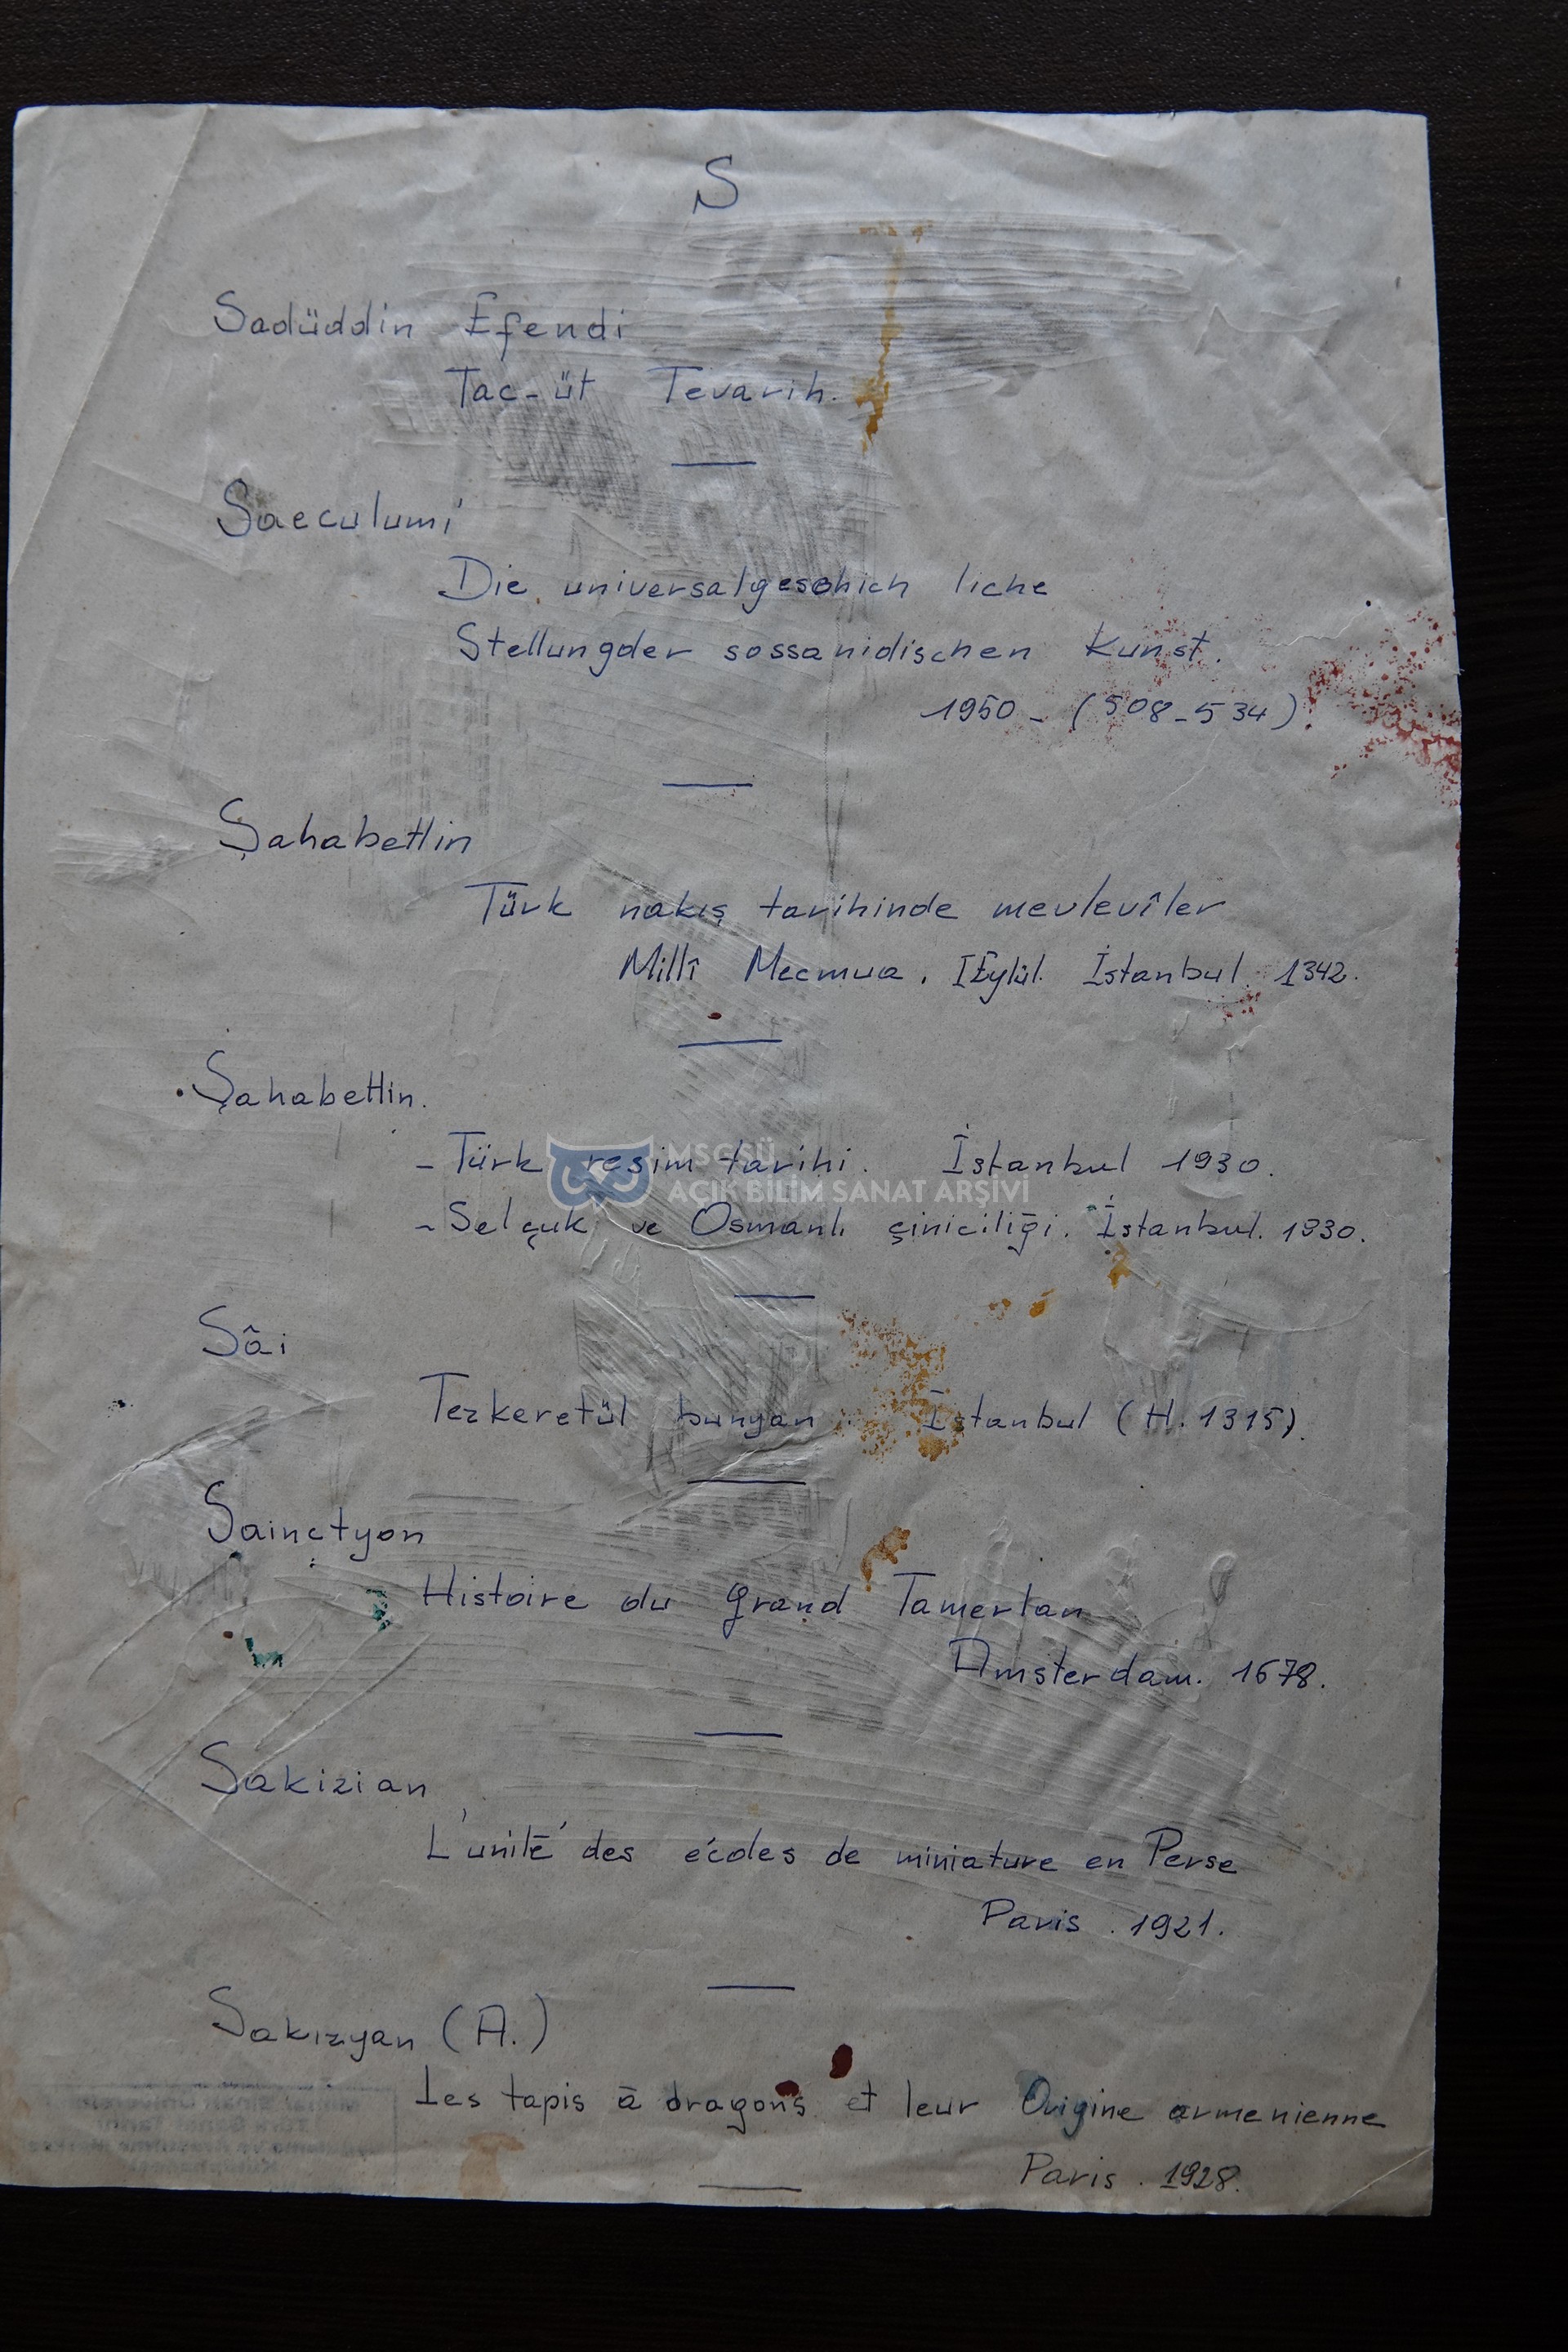 S
Sadüddin Efendi
Tac-üt Tevarih.
Saeculumi
Die universalgeschich liche
Stellungder sossanidischen Kunst.
1950 - (508-534)
Şahabettin
Türk nakış tarihinde mevlevîler
Millî Mecmua. I Eylül. İstanbul. 1342.
Şahabettin.
- Türk resim tarihi. İstanbul 1930.
MSGSÜ
AÇIK BİLİM SANAT ARŞİVİ
- Selçuk ve Osmanlı çiniciliği. İstanbul. 1930.
Sâi
Tezkeretül bunyan İstanbul (H. 1315).
Sainctyon
Histoire du grand Tamerlan
Amsterdam. 1678.
Sakizian
L'unité des écoles de miniature en Perse
Paris . 1921.
Sakızyan (A.)
Les tapis à dragons et leur Origine armenienne
Paris . 1928.